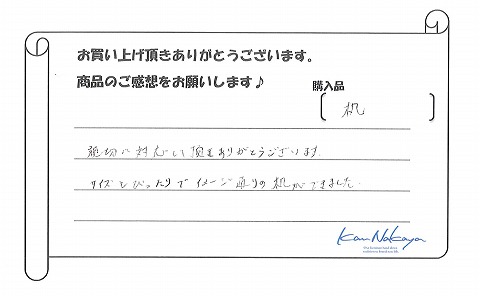 お買い上げ頂きありがとうございます。
商品のご感想をお願いします♪
購入品
机
親切に対応して頂きありがとうございます。
サイズもぴったりでイメージ通りの机ができました。
KanNakaya